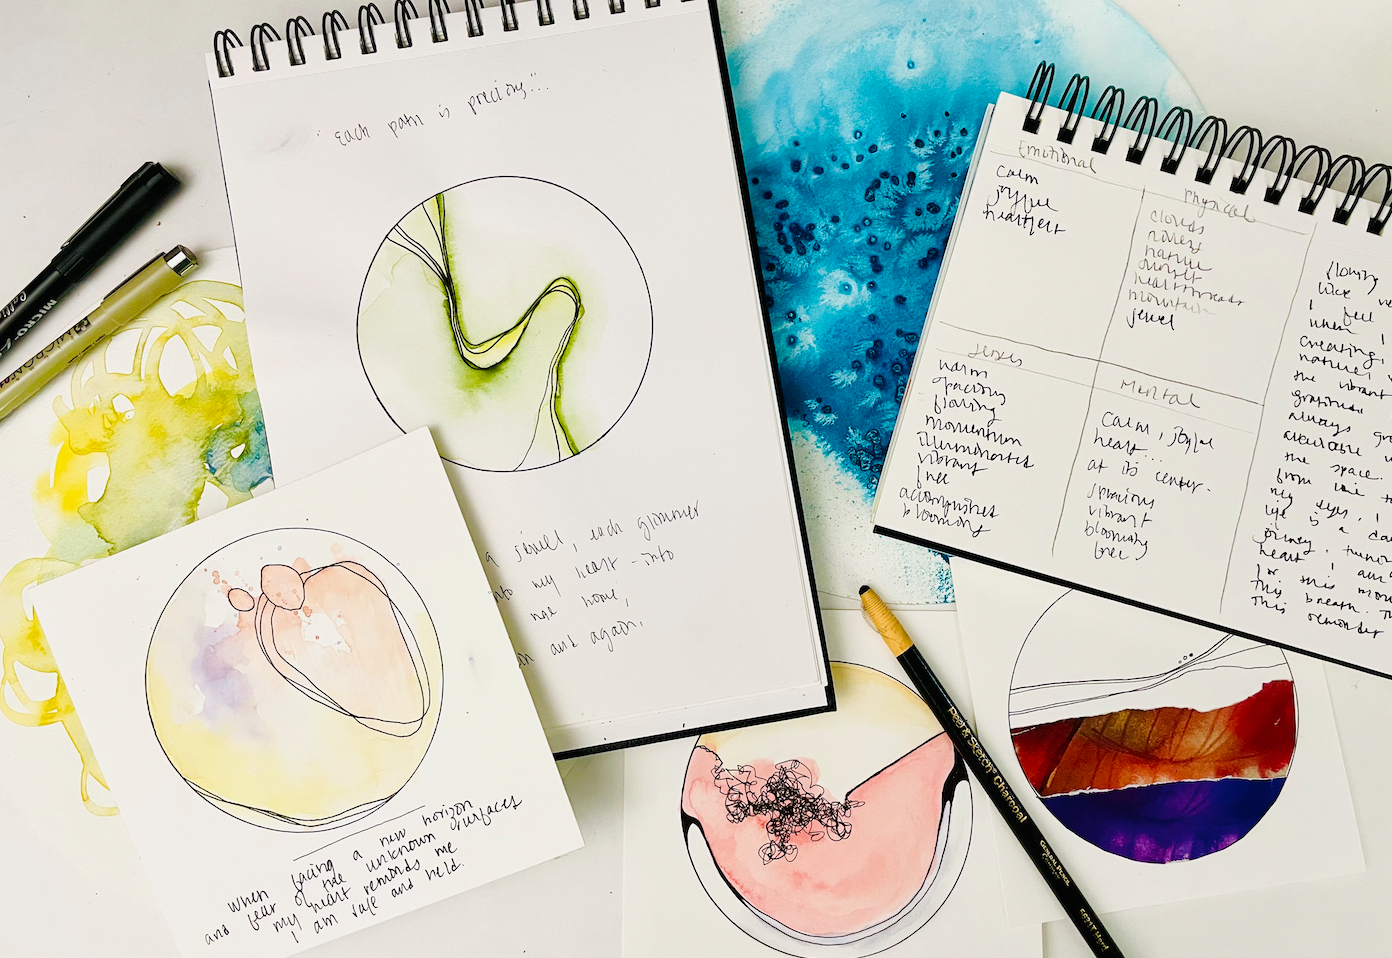 "Each path is precious"...
a jewel, each glimmer
into my heart - into
home,
and again,
when facing a new horizon
and fear of the unknown surfaces
my heart reminds me
I am safe and held.
Emotional
calm
joyful
heartfelt
Physical
clouds
rivers
nature
sunset
heart threads
mountain
jewel
senses
warm
spacious
flowing
momentum
illuminates
vibrant
free
accomplished
blooming
Mental
calm, joyful
heart...
at its center.
spacious
vibrant
blooming
free
flowing
like
I feel
when I
creating,
nature,
the vibrant
gratitude
always
available
the space.
from
my eyes, I
life is a
journey.
heart, I am
for this
this breath.
this reminder
MICRON
Peel & Sketch® Charcoal
General Pencil
Company
5631T Hard